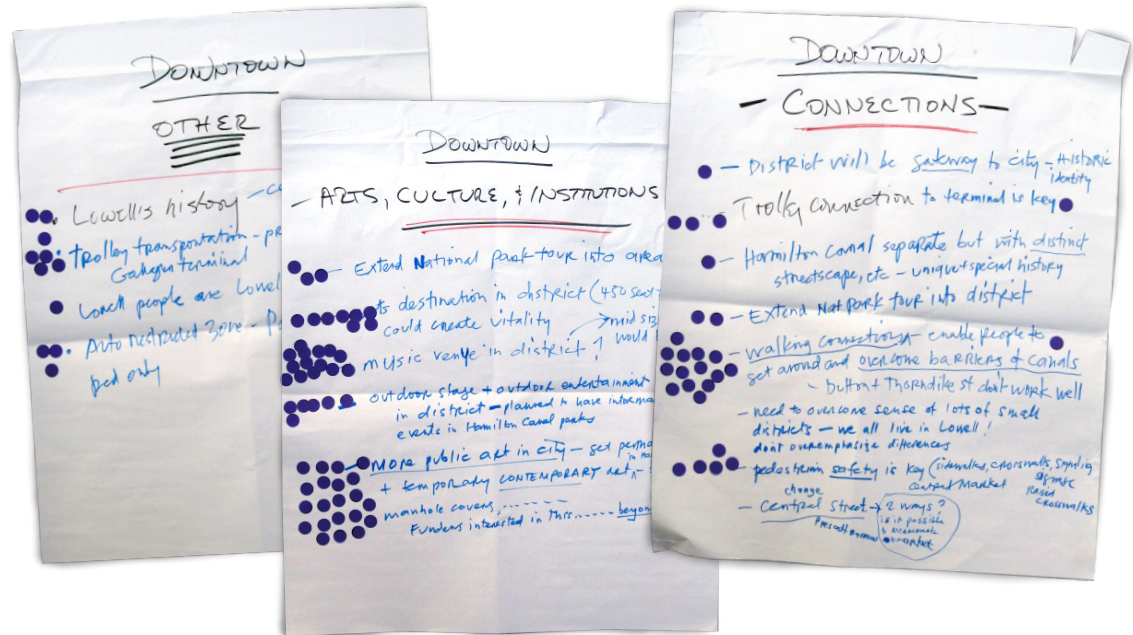 DOWNTOWN
OTHER
Lowell's history - c
Trolley transportation - pr
Gallagher terminal
Lowell people are Lowel
Auto restricted zone - P
ped only
DOWNTOWN
- ARTS, CULTURE, & INSTITUTIONS
- Extend National Park tour into area
ts destination in district (450 seat-
could create vitality
mid siz
would
music venue in district ?
outdoor stage + outdoor entertainment
in district - planned to have informa
events in Hamilton Canal parks
- More public art in city - get perma
+ temporary CONTEMPORARY art
manhole covers, ......
Funders interested in this...... beyon
DOWNTOWN
- CONNECTIONS -
- District will be gateway to city - Historic
identity
- Trolley connection to terminal is key
- Hamilton Canal separate but with distinct
streetscape, etc - unique + special history
- Extend Nat Park tour into district
- walking connections - enable people to
get around and overcome barriers of canals
- Dutton + Thorndike st don't work well
- need to overcome sense of lots of small
districts - we all live in Lowell!
don't overemphasize differences
- pedestrian safety is key (sidewalks, crosswalks, signaling
Central Market
raised
crosswalks
change
- Central Street → 2 ways?
is it possible